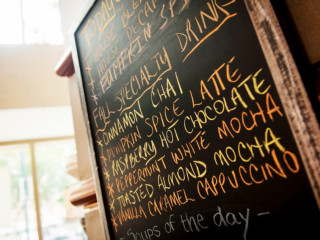 PUMPKIN SPI
FALL SPECIALTY DRINK
*CINNAMON CHAI
*PUMPKIN SPICE LATTE
*RASPBERRY HOT CHOCOLATE
*PEPPERMINT WHITE MOCHA
*TOASTED ALMOND MOCHA
*VANILLA CARAMEL CAPPUCCINO
Soups of the day -